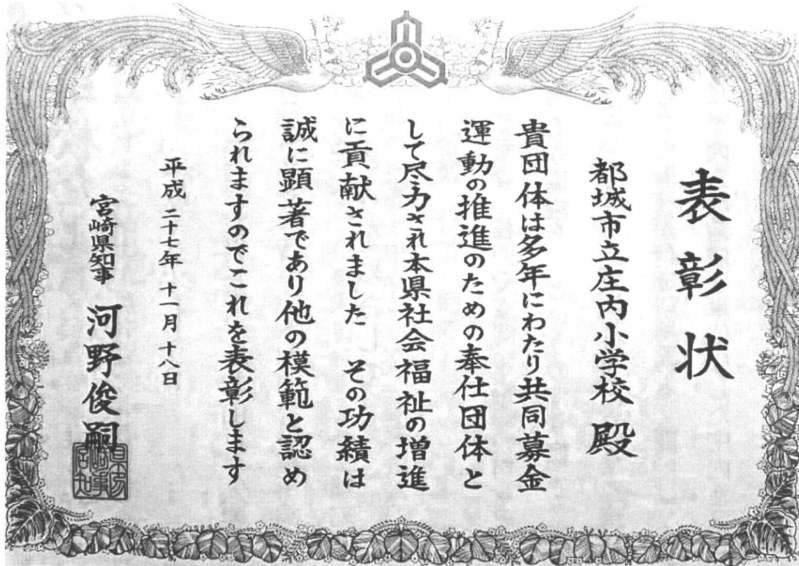 表彰状
都城市立庄内小学校 殿
貴団体は多年にわたり共同募金
運動の推進のための奉仕団体と
して尽力され本県社会福祉の増進
に貢献されました その功績は
誠に顕著であり他の模範と認め
られますのでこれを表彰します
平成二十七年十一月十八日
宮崎県知事 河野俊嗣